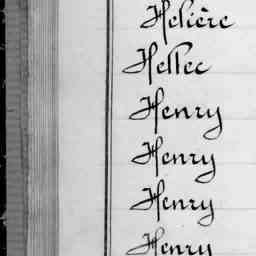 Helière
Hellec
Henry
Henry
Henry
Henry